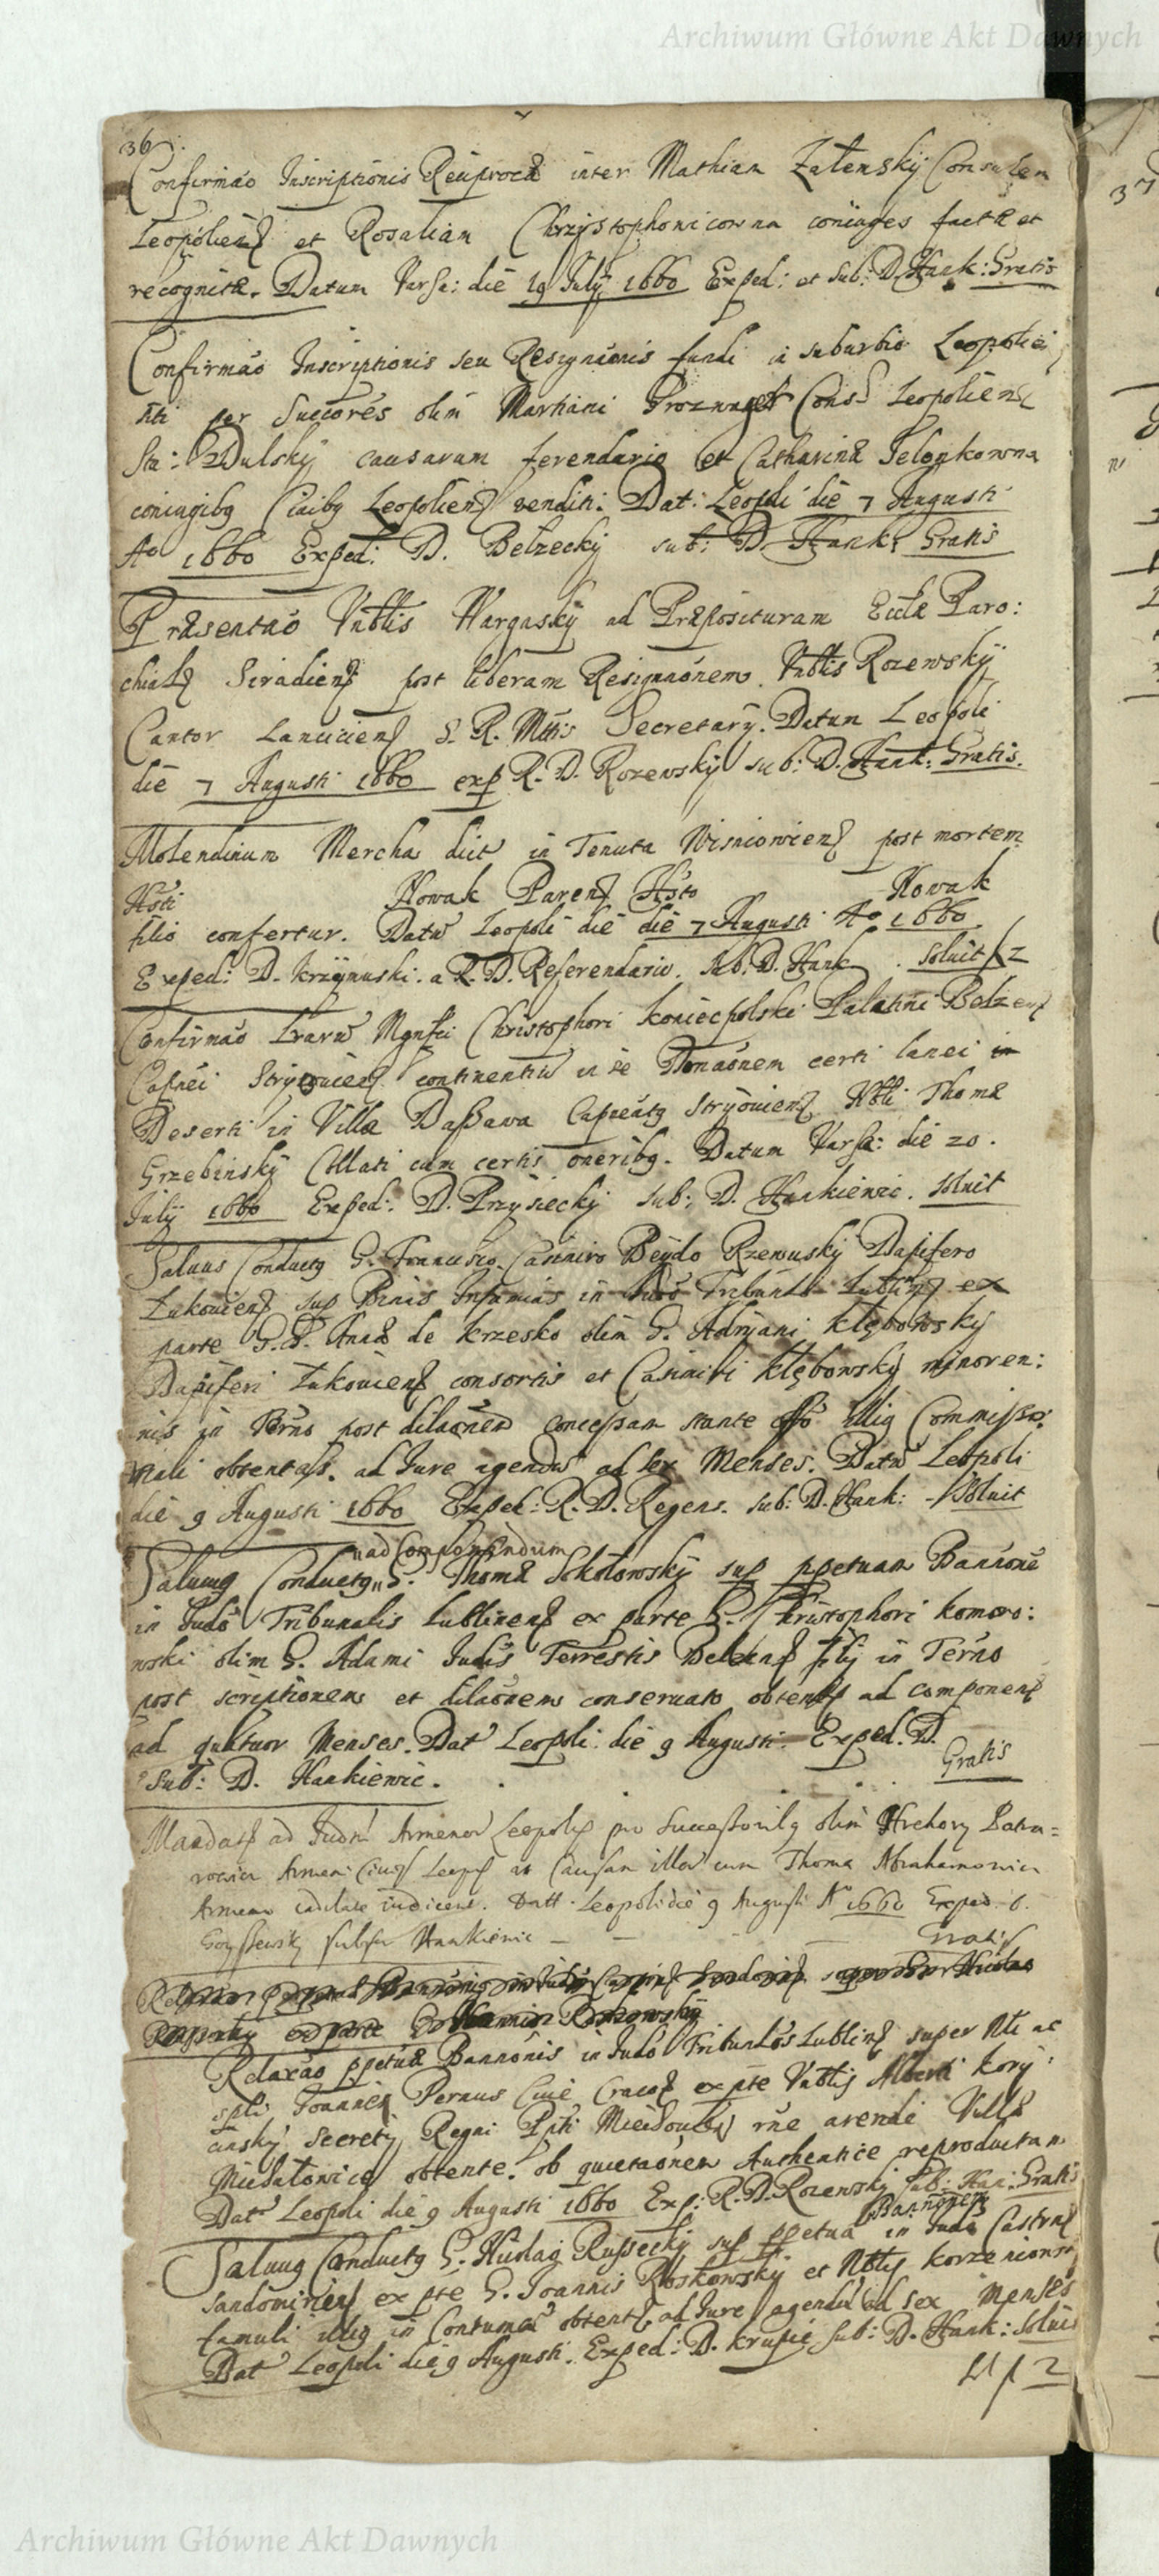 Archiwum Główne Akt Dawnych
36
Confirmáo Inscriptionis Reciprocæ inter Mathiam Zaleńsky Consulem
Leopolien et Rosaliam Chrzystophowicowna coniuges factæ et
recognitæ. Datum Varsa: die 19 July 1660 Exped: et sub: D. Hank: Gratis
Confirmáo Inscriptionis seu Resignõnis fundi in suburbio Leopolień
siti per Succores olim Martiani Cons Leopolien
Sta: Dulsky causarum ferendario et Catharinæ Jelonkowna
coniugibg Ciuibg Leopolien venditi. Dat: Leopoli die 7 Augusti
Ao 1660 Exped: D. Belzecky sub: D. Hank: Gratis
Præsentaõ Vnblis Wargasky ad Præposituram Eccłæ Paro:
chial Siradien post liberam Resignaõnem Vnblis Rozewsky
Cantor Lancicien S. R. Mttis Secretary. Datum Leopoli
die 7 Augusti 1660 exp R. D. Rozewsky sub: D. Hank: Gratis.
Molendinum Mercha dict in Tenuta Wisniowien post mortem
Hsti Nowak Paren Hsto Nowak
filio confertur. Datu Leopoli die die 7 Augusti Ao 1660
Exped: D. Krzynuski. a R. D. Referendario. Sub. D. Hank. soluit f 2
Confirmáo Lraru Mgnfci Christophori Koniecpolski Palatini Belzen
Capnei Stryouien continentiu in se Donaõnem certi lanei in
Deserti in Villa Daßawa Capneatg Stryouien Nbli Thomæ
Grzebinsky Collati cum certis oneribg. Datum Varsa: die 20.
July 1660 Exped: D. Przysiecky sub: D. Hankiewic. soluit
Saluus Conductg G. Francisco Casimiro Beydo Rzewusky Dapifero
Lukouien sup Binis Infamias in Iudo Tribunlis Lublin ex
parte G. G. Annæ de Krzesko olim G. Adriani Kłębowsky
Dapiferi Lukouien consortis et Casimiri Kłębowsky minoren:
nis in Terno post dilaõnem concessam stante offo illig Commisso:
riali obtentas. ad Iure agendu ad sex Menses. Datu Leopoli
die 9 Augusti 1660 Exped: R. D. Regens. sub: D. Hank: Soluit
ad Componendum
Saluug Conductg G. Thomæ Sokołowsky sup ppetuam Bannoné
in Iudo Tribunalis Lublinen ex parte G. Christophori Komoro:
wski olim G. Adami Iudis Terrestis Belzen fily in Terno
post scriptionem et dilaõnem conseruato obtent ad componen
ad quatuor Menses. Dat Leopoli. die 9 Augusti. Exped. D.
Sub: D. Hankiewic. Gratis
Mandat ad Iudm Armenor Leopol pro Successoribg olim Hrehory
Armeni Ciuis Leopl in Causam illor cum Thoma Abrahamowicz
Armeno iudicent. Datt. Leopoli die 9 Augusti Ao 1660 Exped. D.
subscr Hankiewic Gratis
Relaxáo ppetuæ Bannõnis in Iudo Tribunlos Lublin super Nli ac
spli Joannes Pernus Ciue Craco ex pte Vnblis Alberti Kory:
cinsky Secrety Regni Ppti rne arendæ Villæ
obtente. ob quietaõnem Authentice reproductam
Dat Leopoli die 9 Augusti 1660 Exp: R. D. Rozewsky sub: Han: Gratis
Bannõnem
Saluug Conductg G. Nicolag Rußecky sup ppetua in Iudo Castren
Sandomirien ex pte G. Joannis Roskowsky et Nblis Korzeniows
famuli illig in Contumac obtent ad Iure agendu ad sex Menses
Dat Leopoli die 9 Augusti. Exped: D. Krupie sub: D. Hank: Soluit
f 2
37
Archiwum Główne Akt Dawnych